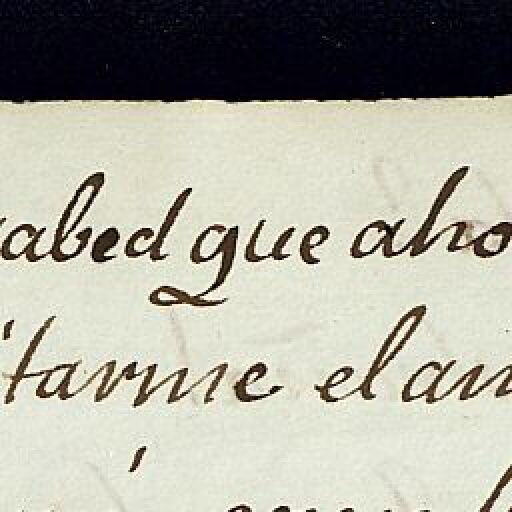 sabed que aho
itarme el am